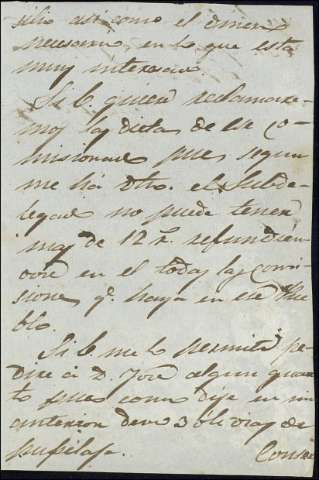 silio asi como el dinero
necesario, en lo que esta
muy interesado.
Si V. quiere reclamare-
mos las dietas de ese co-
misionado pues segun
me ha dho. el Subde-
legado no puede tener
mas de 12 r. refundien
dose en el todas las comi-
siones q. haya en ese Pue
blo.
Si V. me lo permite pe-
dire á D. José algun quar
to pues como dije en mi
anterior deve 3 ó 4 dias de
pupilaje.